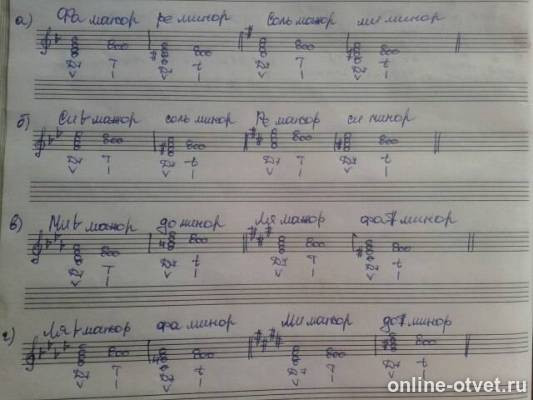 а) Фа мажор ре минор Соль мажор ми минор
D7 T D7 t D7 T D7 t
V I V I V I V I
б) Си♭ мажор соль минор Ре мажор си минор
D7 T D7 t D7 T D7 t
V I V I V I V I
в) Ми♭ мажор до минор Ля мажор фа♯ минор
D7 T D7 t D7 T D7 t
V I V I V I V I
г) Ля♭ мажор фа минор Ми мажор до♯ минор
D7 T D7 t D7 T D7 t
V I V I V I V I
online-otvet.ru